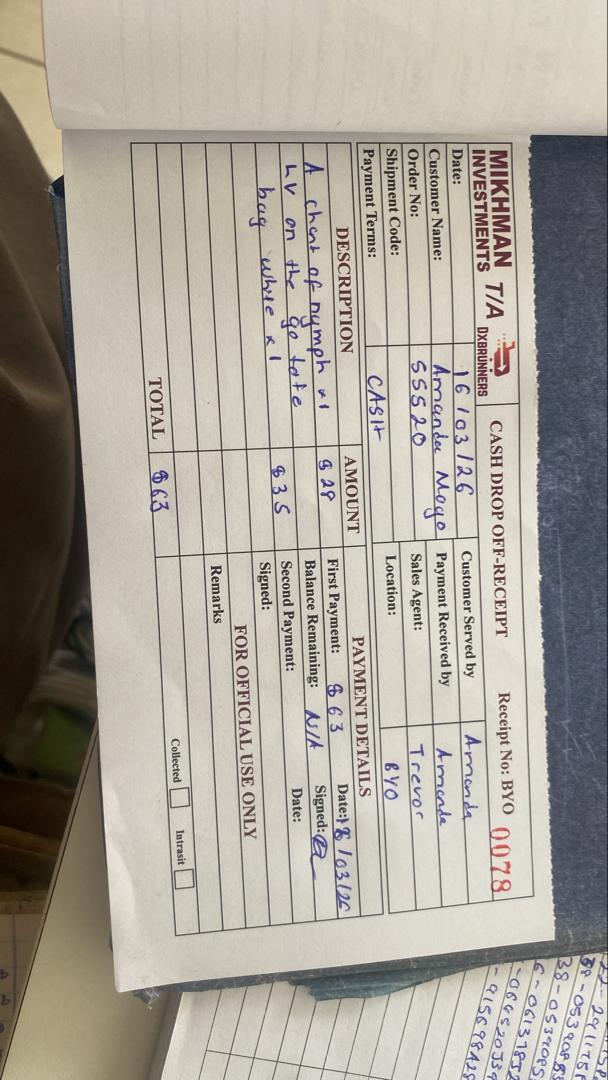 MIKHMAN T/A DXBRUNNERS
INVESTMENTS
CASH DROP OFF-RECEIPT
Receipt No: BYO 0078
Date: 16/03/26
Customer Name: Amanda Moyo
Order No: 55520
Shipment Code:
Payment Terms: CASH
Customer Served by Amanda
Payment Received by Amanda
Sales Agent: Trevor
Location: BYO
DESCRIPTION AMOUNT
A chant of nymph x1 $28
LV on the go tote
bag white x1 $35
TOTAL $63
PAYMENT DETAILS
First Payment: $63 Date: 18/03/26
Balance Remaining: N/A Signed:
Second Payment: Date:
Signed:
FOR OFFICIAL USE ONLY
Remarks
Collected Intrasit